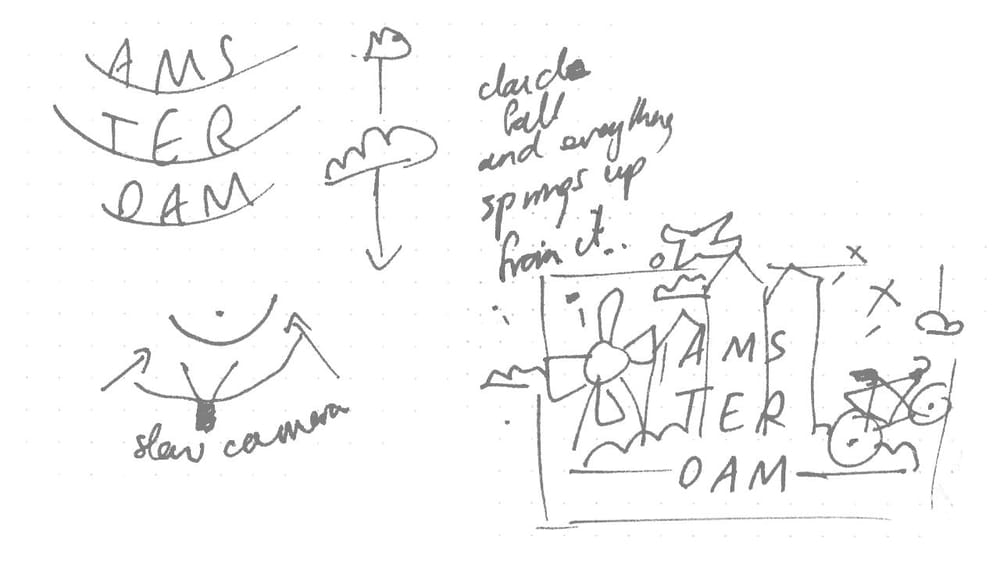 AMS
TER
DAM
clouds
fall
and everything
springs up
from it..
slow camera
AMS
TER
DAM